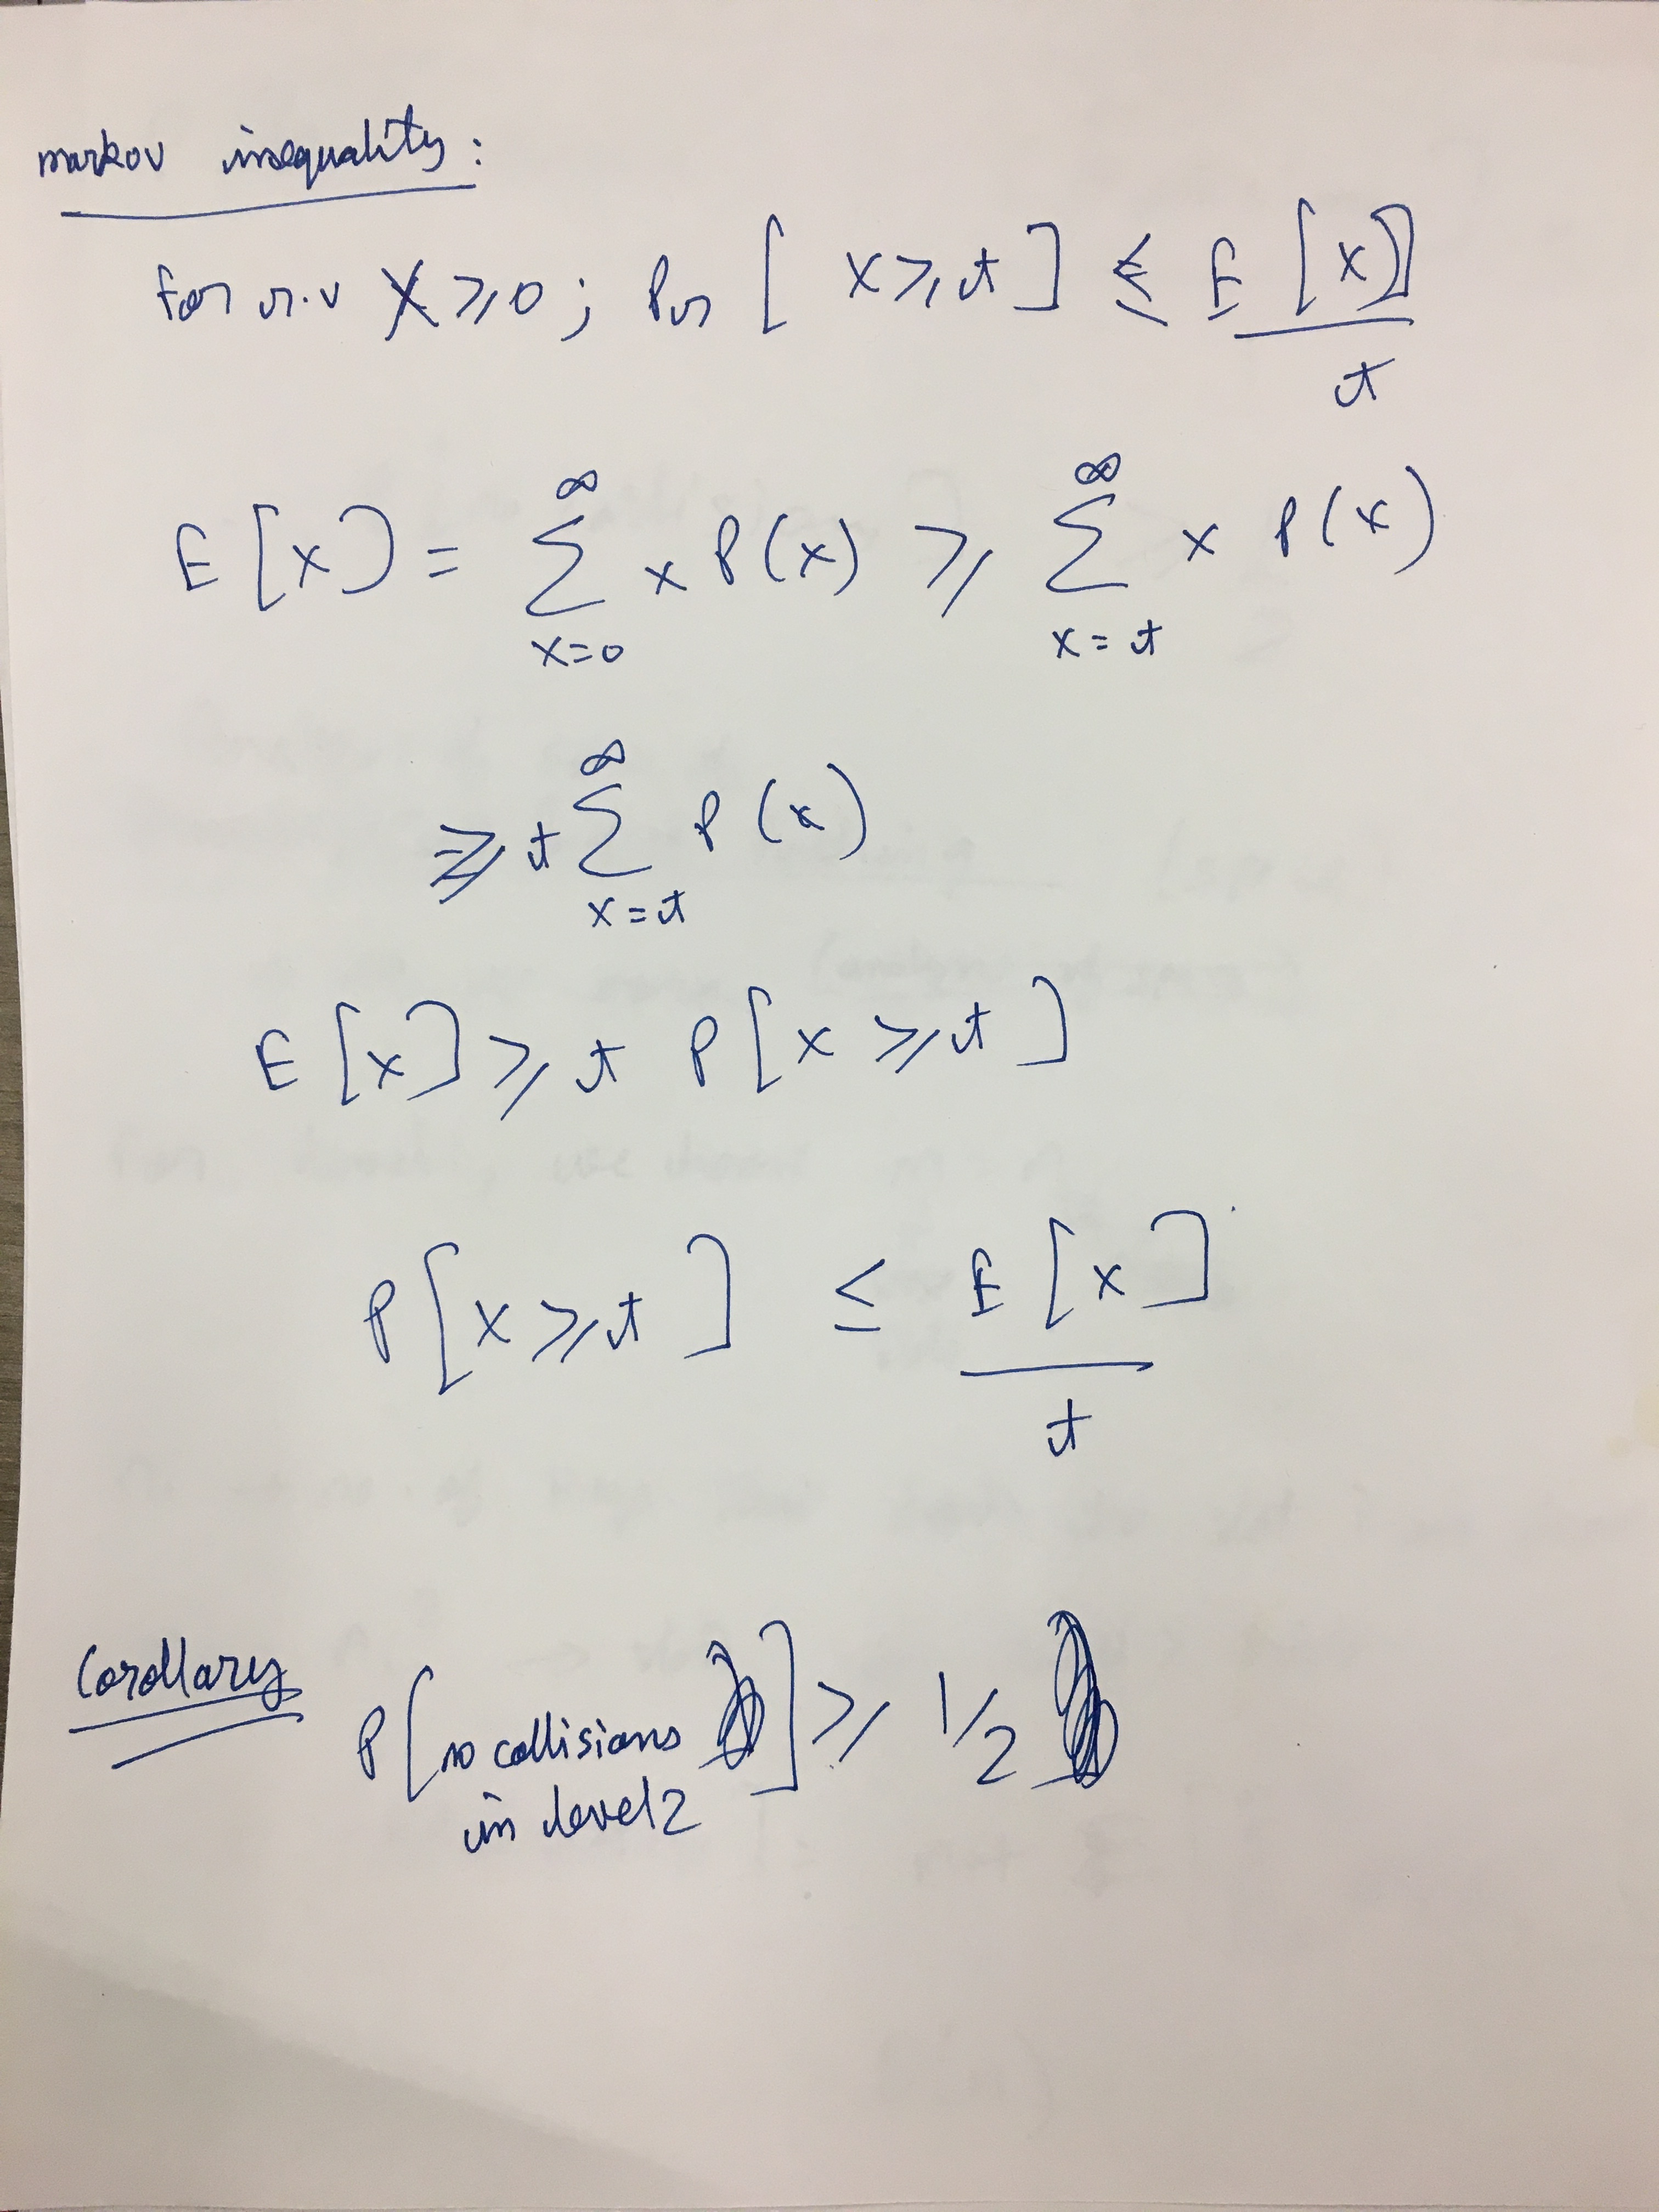 markov inequality:
for r.v X ≥ 0; Pr [ X ≥ t ] ≤ E [X] / t
E [x] = ∑_{x=0}^{∞} x P(x) ≥ ∑_{x=t}^{∞} x P(x)
≥ t ∑_{x=t}^{∞} P(x)
E [x] ≥ t P[x ≥ t]
P[x ≥ t] ≤ E [x] / t
Corollary P[no collisions in level 2] ≥ 1/2